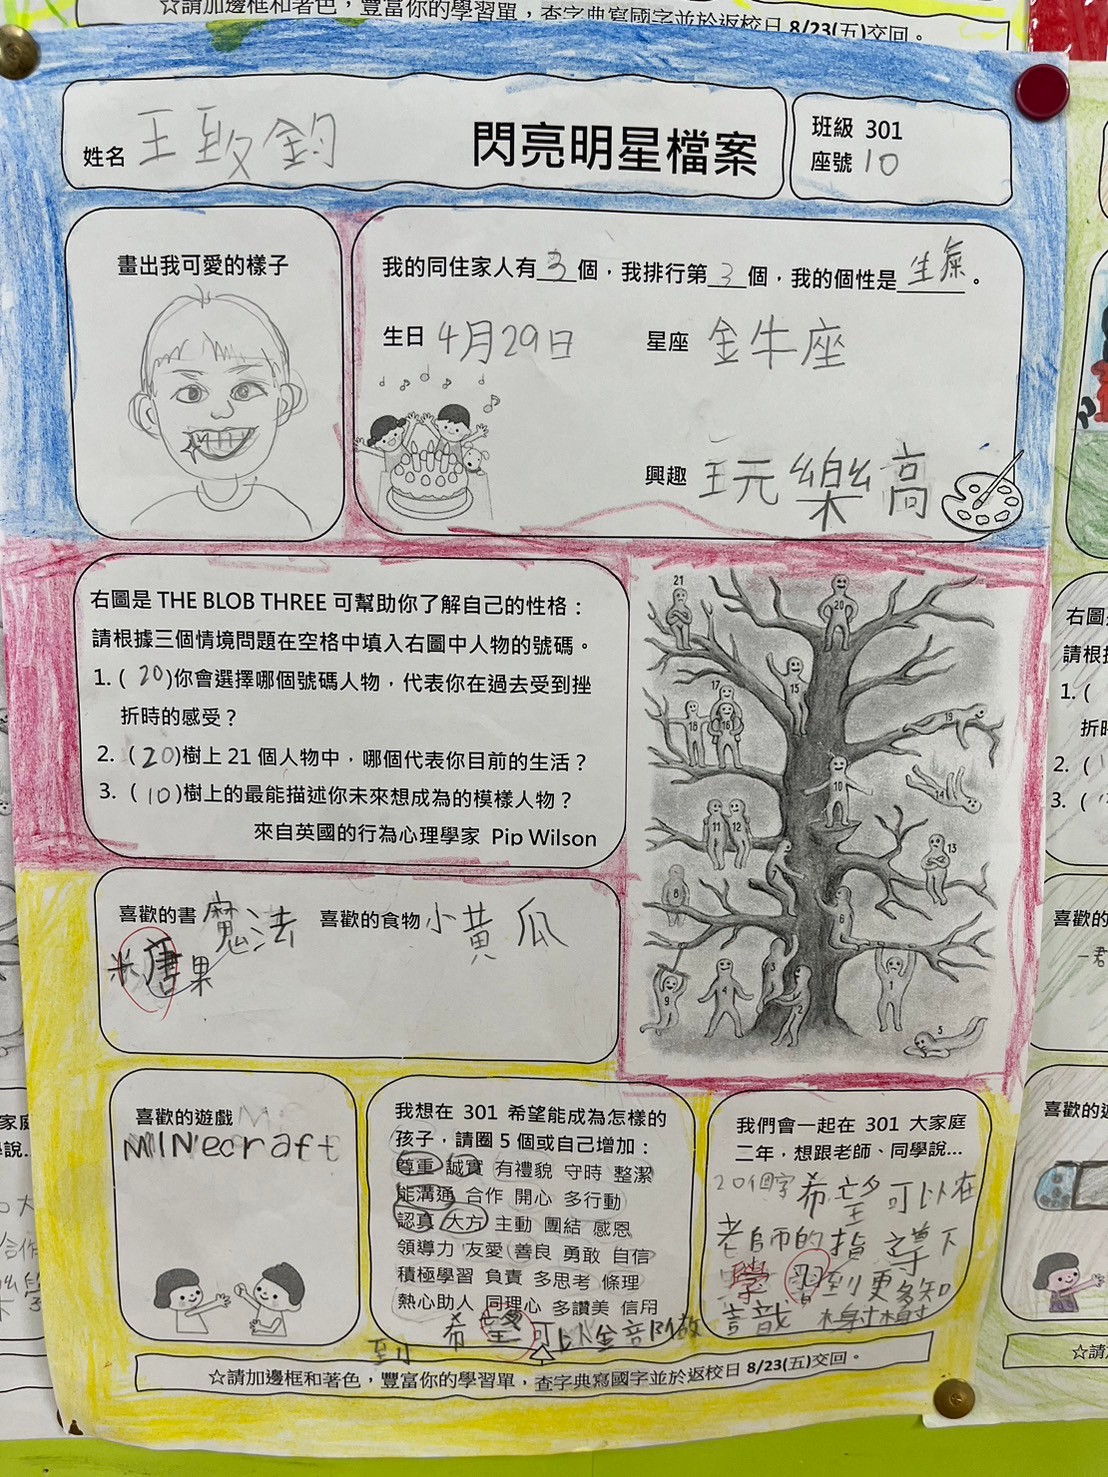 ☆請加邊框和著色，豐富你的學習單，查字典寫國字並於返校日 8/23(五)交回。
姓名 王致鈞
閃亮明星檔案
班級 301
座號 10
畫出我可愛的樣子
我的同住家人有 3 個，我排行第 3 個，我的個性是 生氣 。
生日 4月29日 星座 金牛座
興趣 玩樂高
右圖是 THE BLOB THREE 可幫助你了解自己的性格：
請根據三個情境問題在空格中填入右圖中人物的號碼。
1. ( 20 )你會選擇哪個號碼人物，代表你在過去受到挫
折時的感受？
2. (20)樹上 21 個人物中，哪個代表你目前的生活？
3. (10)樹上的最能描述你未來想成為的模樣人物？
來自英國的行為心理學家 Pip Wilson
21
20
17
15
18
16
19
10
14
11
12
13
8
6
3
4
9
2
1
5
喜歡的書 魔法 喜歡的食物 小黃瓜
糖果
喜歡的遊戲
MINecraft
我想在 301 希望能成為怎樣的
孩子，請圈 5 個或自己增加：
尊重 誠實 有禮貌 守時 整潔
能溝通 合作 開心 多行動
認真 大方 主動 團結 感恩
領導力 友愛 善良 勇敢 自信
積極學習 負責 多思考 條理
熱心助人 同理心 多讚美 信用
希望可以全部做
到
我們會一起在 301 大家庭
二年，想跟老師、同學說...
20個字 希望可以在
老師的指導下
學習到更多知
識 謝謝
☆請加邊框和著色，豐富你的學習單，查字典寫國字並於返校日 8/23(五)交回。
右圖
請根
1. (
折時
2. (
3. (
喜歡的
喜歡的遊
☆請